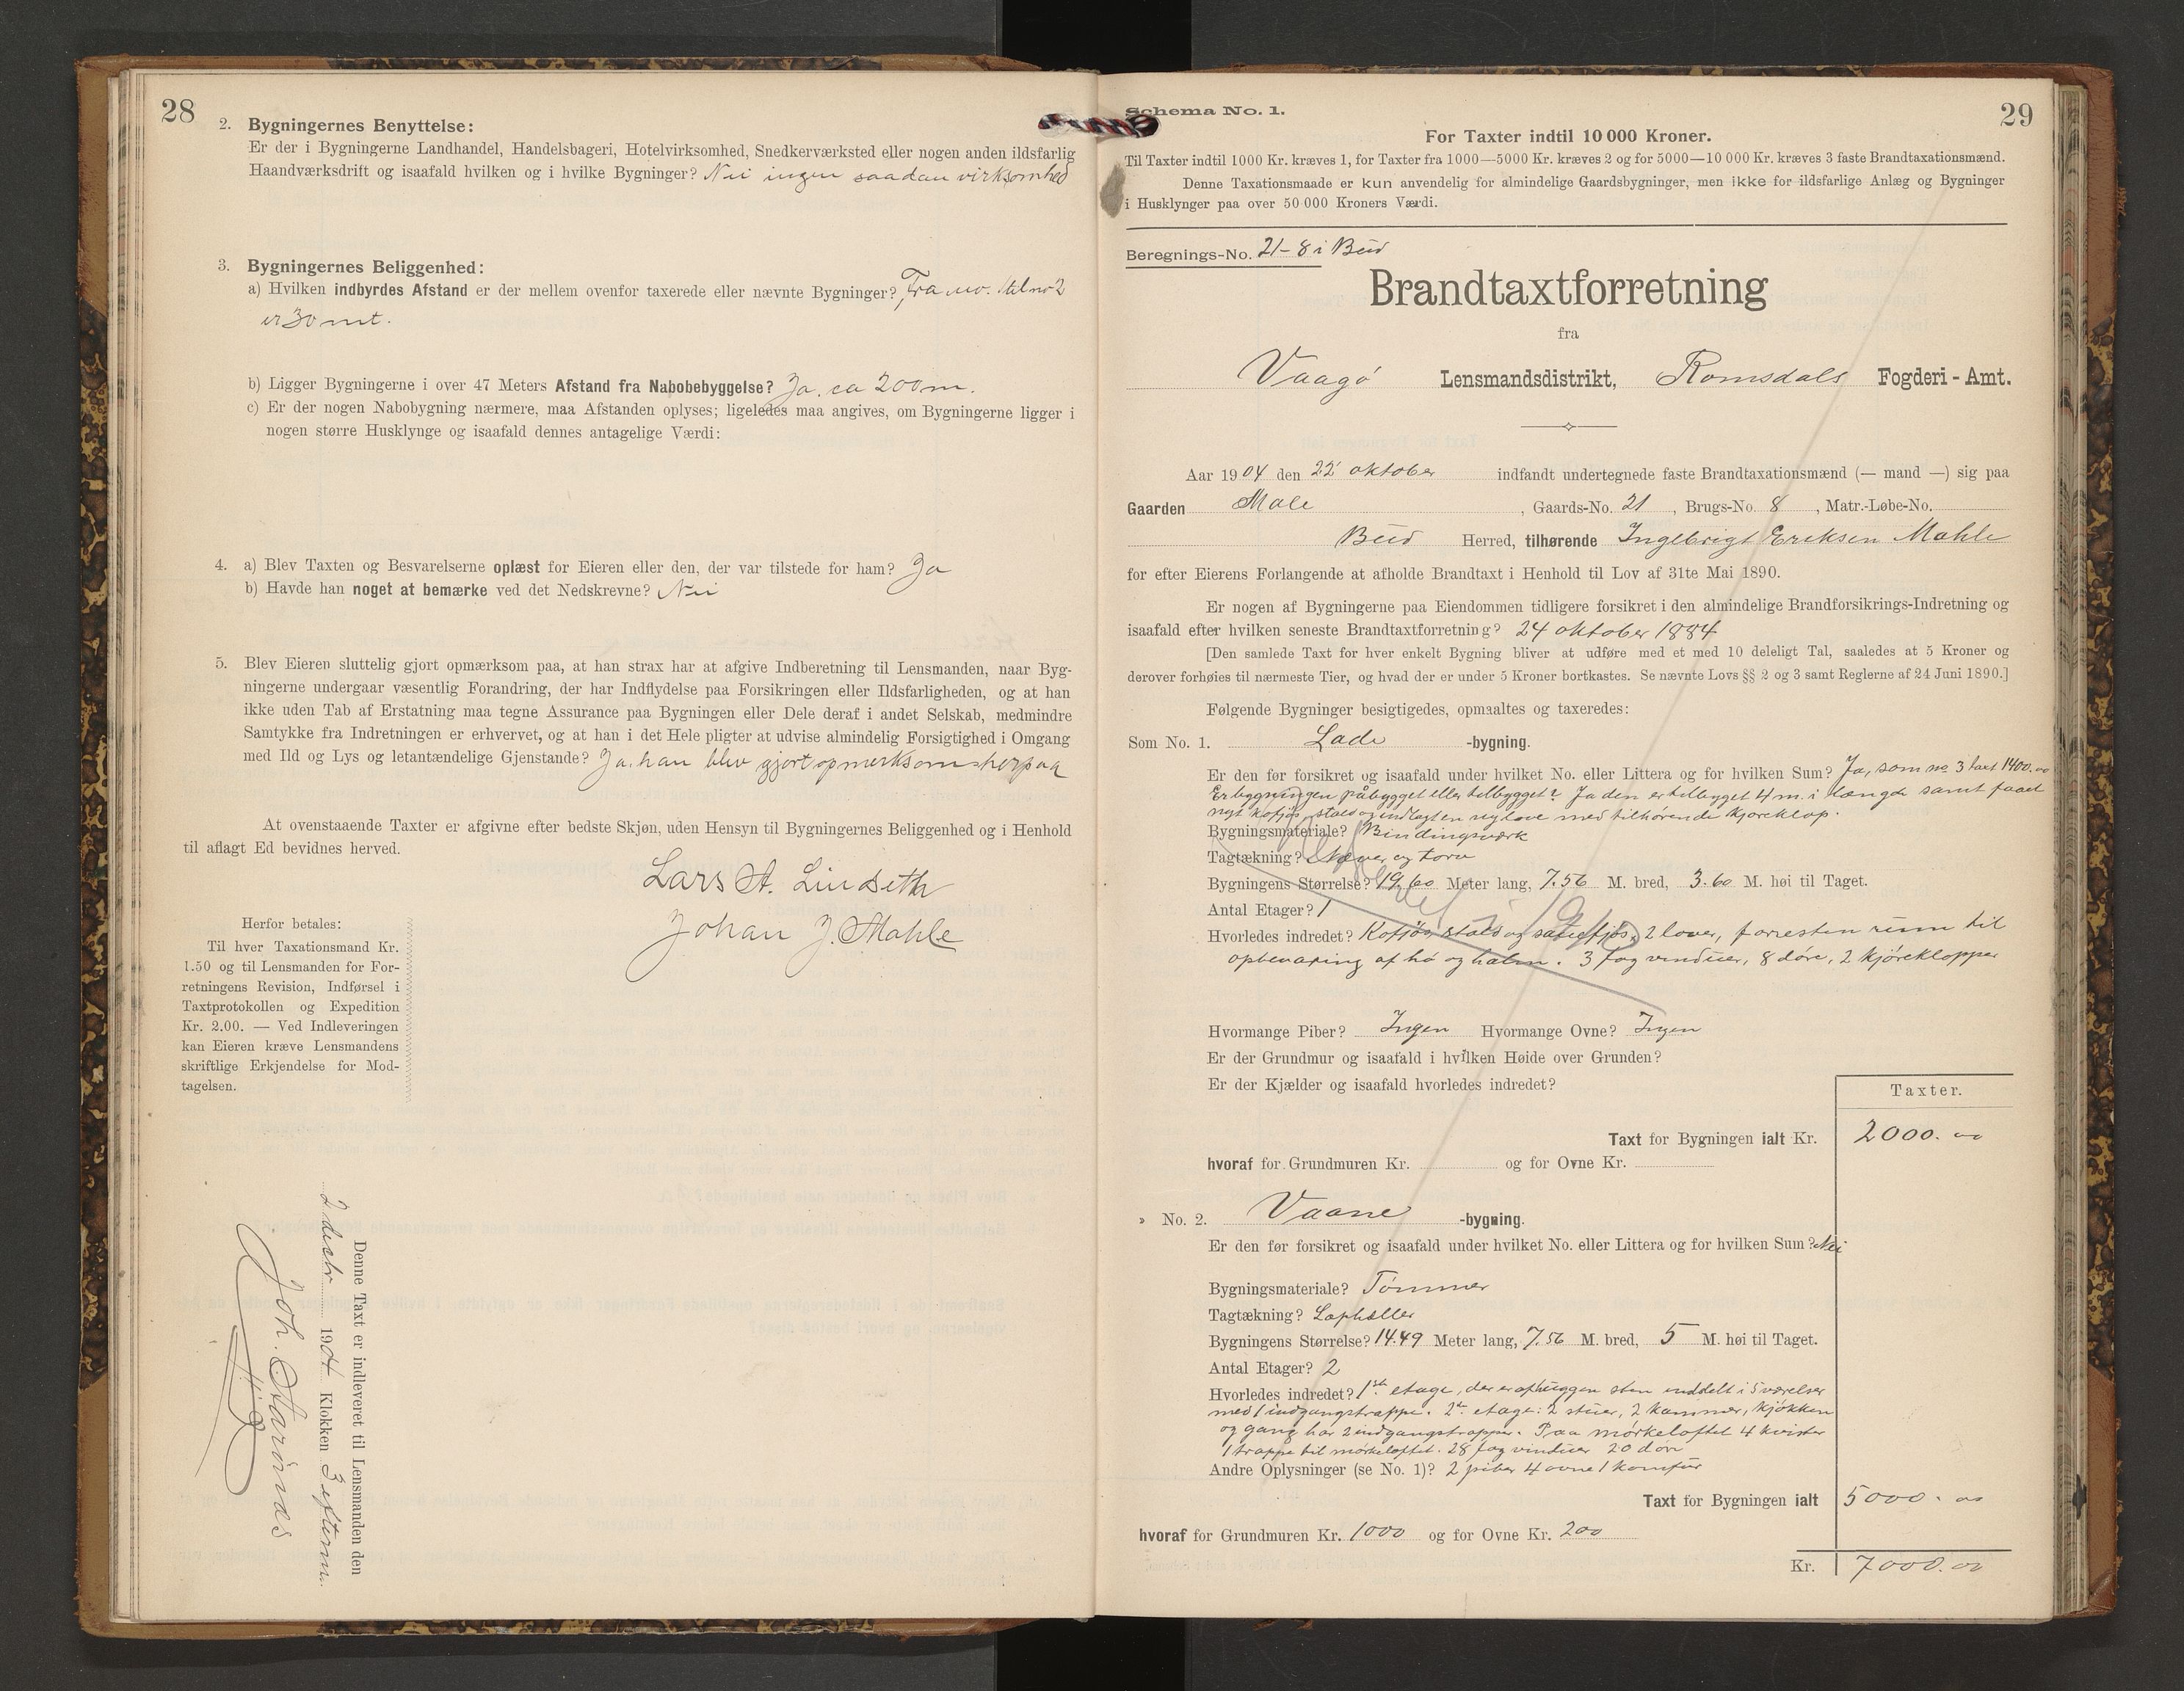 28
2. Bygningernes Benyttelse:
Er der i Bygningerne Landhandel, Handelsbageri, Hotelvirksomhed, Snedkerværksted eller nogen anden ildsfarlig
Haandværksdrift og isaafald hvilken og i hvilke Bygninger? Nei ingen saadan virksomhed
3. Bygningernes Beliggenhed:
a) Hvilken indbyrdes Afstand er der mellem ovenfor taxerede eller nævnte Bygninger? Fra no. 1 til no 2
er 30 mt.
b) Ligger Bygningerne i over 47 Meters Afstand fra Nabobebyggelse? Ja, ca 200 m.
c) Er der nogen Nabobygning nærmere, maa Afstanden oplyses; ligeledes maa angives, om Bygningerne ligger i
nogen større Husklynge og isaafald dennes antagelige Værdi:
4. a) Blev Taxten og Besvarelserne oplæst for Eieren eller den, der var tilstede for ham? Ja
b) Havde han noget at bemærke ved det Nedskrevne? Nei
5. Blev Eieren sluttelig gjort opmærksom paa, at han strax har at afgive Indberetning til Lensmanden, naar Byg-
ningerne undergaar væsentlig Forandring, der har Indflydelse paa Forsikringen eller Ildsfarligheden, og at han
ikke uden Tab af Erstatning maa tegne Assurance paa Bygningen eller Dele deraf i andet Selskab, medmindre
Samtykke fra Indretningen er erhvervet, og at han i det Hele pligter at udvise almindelig Forsigtighed i Omgang
med Ild og Lys og letantændelige Gjenstande? Ja, han blev gjort opmerksom herpaa
At ovenstaaende Taxter er afgivne efter bedste Skjøn, uden Hensyn til Bygningernes Beliggenhed og i Henhold
til aflagt Ed bevidnes herved.
Lars A. Lindseth
Johan J. Mahle
Herfor betales:
Til hver Taxationsmand Kr.
1.50 og til Lensmanden for For-
retningens Revision, Indførsel i
Taxtprotokollen og Expedition
Kr. 2.00. — Ved Indleveringen
kan Eieren kræve Lensmandens
skriftlige Erkjendelse for Mod-
tagelsen.
Denne Taxt er indleveret til Lensmanden den
2 desbr 1904 Klokken 3 efterm.
Joh.
29
Schema No. 1.
For Taxter indtil 10 000 Kroner.
Til Taxter indtil 1000 Kr. kræves 1, for Taxter fra 1000—5000 Kr. kræves 2 og for 5000—10 000 Kr. kræves 3 faste Brandtaxationsmænd.
Denne Taxationsmaade er kun anvendelig for almindelige Gaardsbygninger, men ikke for ildsfarlige Anlæg og Bygninger
i Husklynger paa over 50 000 Kroners Værdi.
Beregnings-No. 21-8 i Bud
Brandtaxtforretning
fra
Vaagø Lensmandsdistrikt, Romsdals Fogderi - Amt.
Aar 1904 den 22 oktober indfandt undertegnede faste Brandtaxationsmænd (— mand —) sig paa
Gaarden Male, Gaards-No. 21, Brugs-No. 8, Matr.-Løbe-No.
Bud Herred, tilhørende Ingebrigt Eriksen Mahle
for efter Eierens Forlangende at afholde Brandtaxt i Henhold til Lov af 31te Mai 1890.
Er nogen af Bygningerne paa Eiendommen tidligere forsikret i den almindelige Brandforsikrings-Indretning og
isaafald efter hvilken seneste Brandtaxtforretning? 24 oktober 1884
[Den samlede Taxt for hver enkelt Bygning bliver at udføre med et med 10 deleligt Tal, saaledes at 5 Kroner og
derover forhøies til nærmeste Tier, og hvad der er under 5 Kroner bortkastes. Se nævnte Lovs §§ 2 og 3 samt Reglerne af 24 Juni 1890.]
Følgende Bygninger besigtigedes, opmaaltes og taxeredes:
Som No. 1. Lade -bygning.
Er den før forsikret og isaafald under hvilket No. eller Littera og for hvilken Sum? Ja, som no 3 taxt 1400.00
Er bygningen påbygget eller tilbygget? Ja den er tilbygget 4 m. i længde samt faaet
nyt kofjøs, stald og indlagt en ny lave med tilhørende kjøreklop.
Bygningsmateriale? Bindingsværk
Tagtækning? Næver og torv
Bygningens Størrelse? 19,60 Meter lang, 7.56 M. bred, 3.60 M. høi til Taget.
Antal Etager? 1
Hvorledes indredet? Kofjøs, stald og sauefjøs, 2 lover, forresten rum til
opbevaring af hø og halm. 3 fag vinduer, 8 døre, 2 kjøreklopper
Hvormange Piber? Ingen Hvormange Ovne? Ingen
Er der Grundmur og isaafald i hvilken Høide over Grunden?
Er der Kjælder og isaafald hvorledes indredet?
Taxter.
Taxt for Bygningen ialt Kr. 2000.00
hvoraf for Grundmuren Kr. og for Ovne Kr.
» No. 2. Vaane -bygning.
Er den før forsikret og isaafald under hvilket No. eller Littera og for hvilken Sum? Nei
Bygningsmateriale? Tømmer
Tagtækning? Laphæller
Bygningens Størrelse? 14.49 Meter lang, 7.56 M. bred, 5 M. høi til Taget.
Antal Etager? 2
Hvorledes indredet? 1ste etage, der er af huggen sten inddelt i 5 værelser
med 1 indgangstrappe. 2den etage: 2 stuer, 2 kammer, kjøkken
og gang har 2 indgangstrapper. Paa mørkeloftet 4 kvister
1 trappe til mørkeloftet. 28 fag vinduer 20 døre
Andre Oplysninger (se No. 1)? 2 piber 4 ovne 1 komfur
Taxt for Bygningen ialt 5000.00
hvoraf for Grundmuren Kr. 1000 og for Ovne Kr. 200
Kr. 7000.00